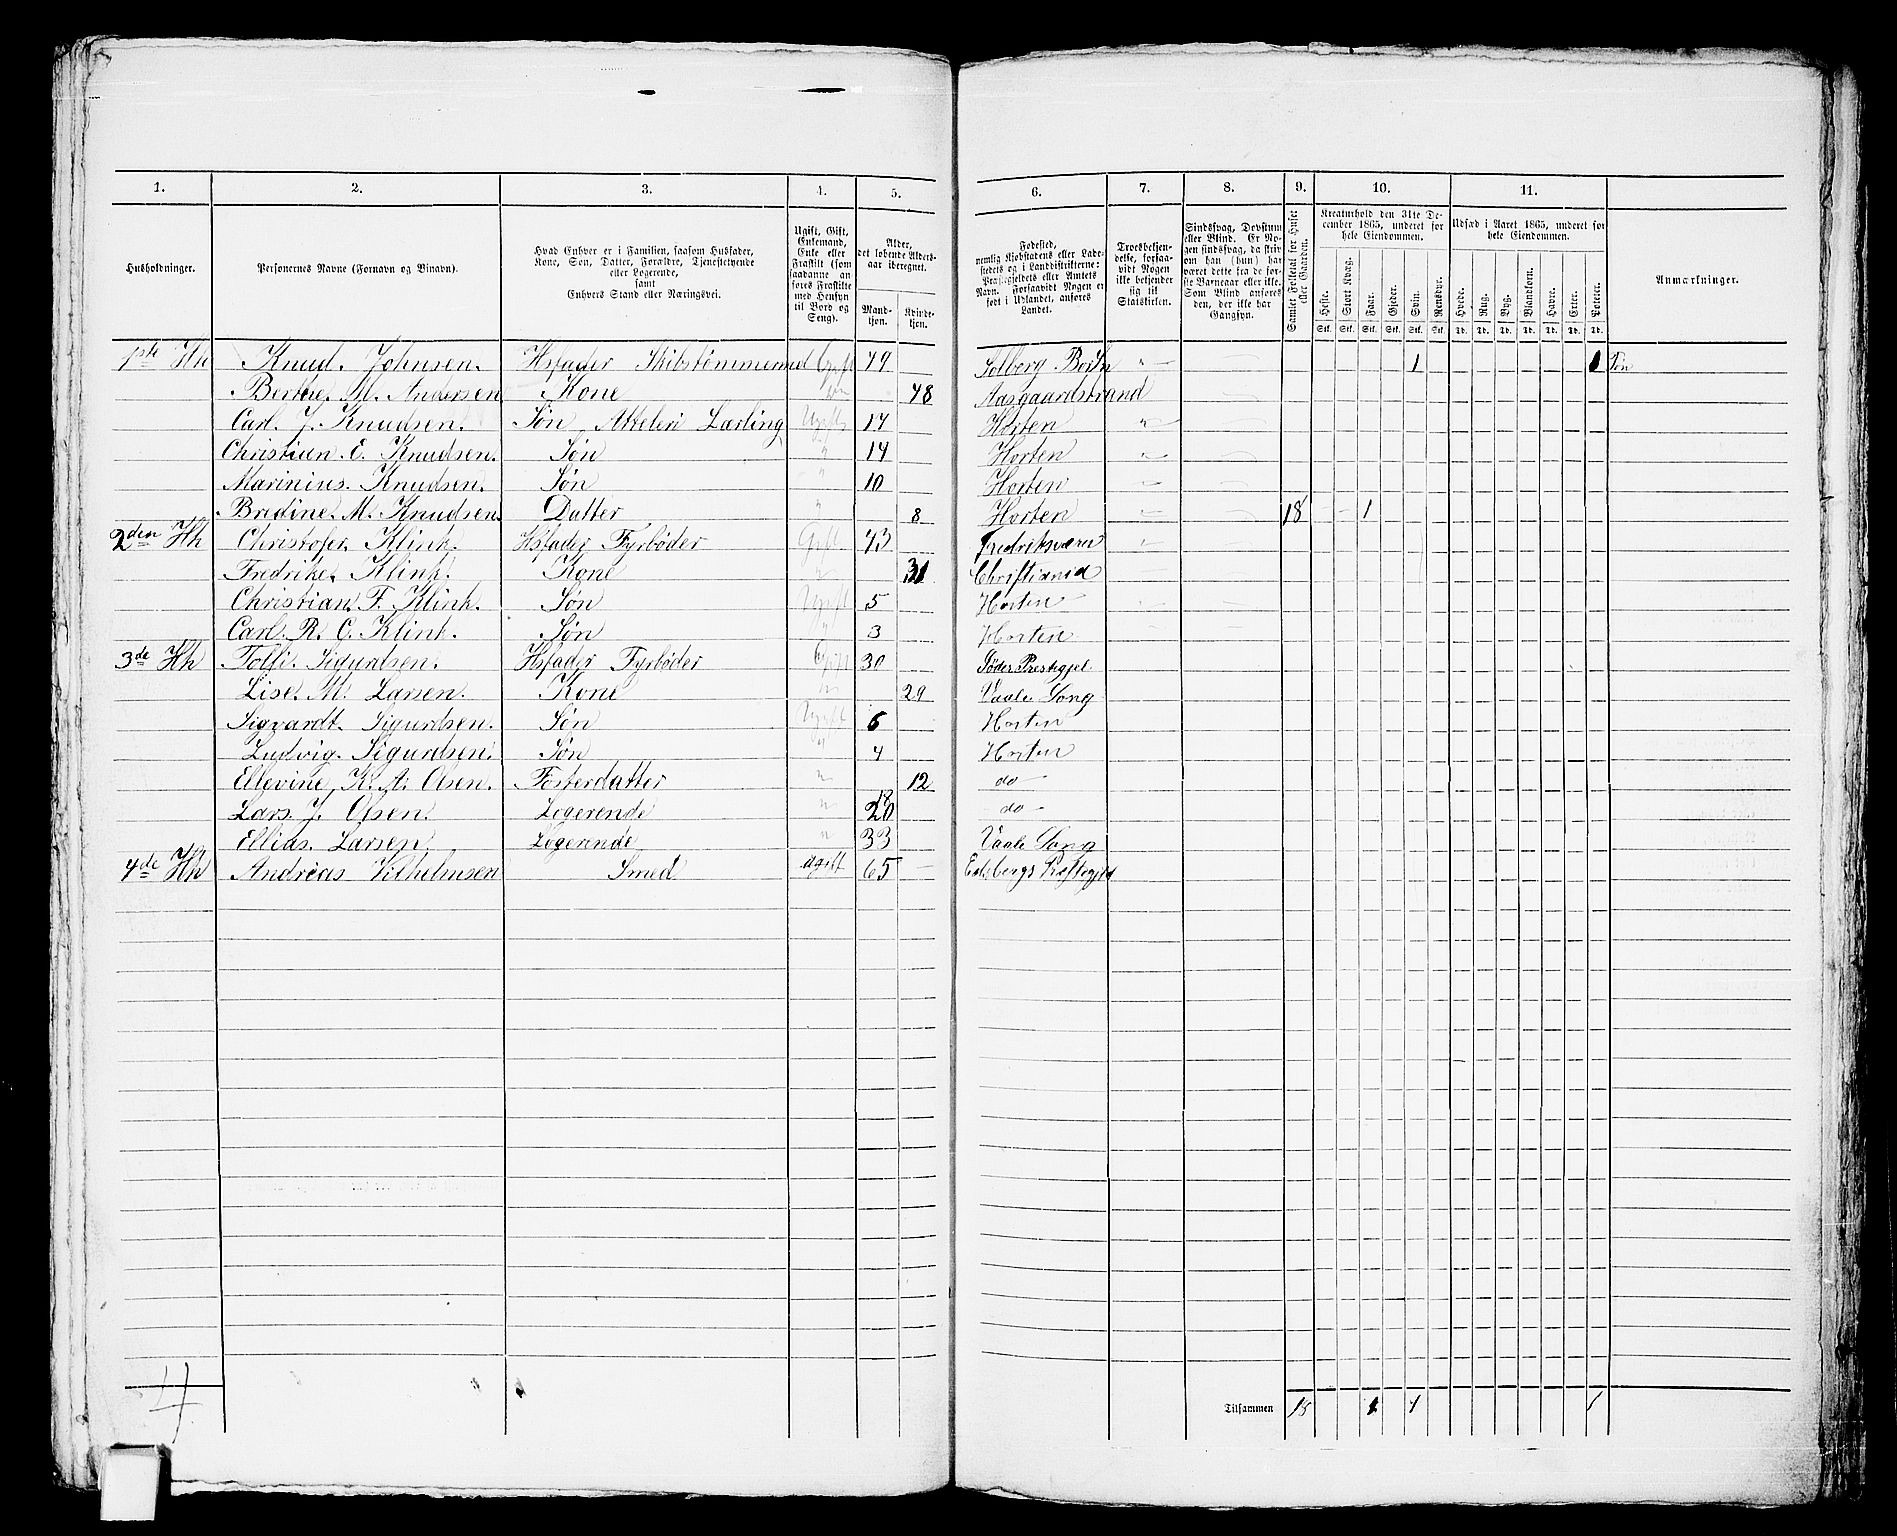 1. 2. 3. 4. 5. 6. 7. 8. 9. 10. 11.
Husholdninger.
Personernes Navne (Fornavn og Binavn).
Hvad Enhver er i Familien, saasom Husfader, Kone, Søn, Datter, Forældre, Tjenestetyende eller Logerende, samt Enhvers Stand eller Næringsvei.
Ugift, Gift, Enkemand, Enke eller Fraskilt (som saadanne anføres Fraskilte med Hensyn til Bord og Seng).
Alder, det løbende Aldersaar iberegnet.
Mandkjøn. Kvindekjøn.
Fødested, nemlig Kjøbstadens eller Ladestedets og i Landdistrikterne: Præstegjeldets eller Amtets Navn. Forsaavidt Nogen er født i Udlandet, anføres Landet.
Troesbekjendelse, forsaavidt Nogen ikke bekjender sig til Statskirken.
Sindssvag, Døvstum eller Blind. Er Nogen sindssvag, da skriv om han (hun) har været dette fra de første Barneaar eller ikke. Som Blind anføres den, der ikke har Gangsyn.
Samlet Folketal for Huset eller Gaarden.
Kreaturhold den 31te December 1865, underet for hele Eiendommen.
Heste. Stort Kvæg. Faar. Gjeder. Svin. Rensdyr.
Stk. Stk. Stk. Stk. Stk. Stk.
Udsæd i Aaret 1865, underet for hele Eiendommen.
Hvede. Rug. Byg. Blandkorn. Havre. Erter. Poteter.
Td. Td. Td. Td. Td. Td. Td.
Anmærkninger.
1ste Hh Knud. Johnsen. Hsfader Skibstømmermd Gift 49 Solberg 1 1 Tøn
Berthe. M. Andersen Kone 48 Aasgaardstrand
Carl. J. Knudsen. Søn, Atteleri Lærling Ugift 17 Horten
Christian. E. Knudsen. Søn " 14 Horten
Marinius. Knudsen. Søn " 10 Horten
Bredine. M. Knudsen. Datter " 8 Horten 18 1
2den Hh Christofer. Klink. Hsfader Fyrbøder Gift 43 Fredriksværn
Fredrike. Klink. Kone " 31 Christiania
Christian. F. Klink. Søn Ugift 5 Horten
Carl. R. C. Klink. Søn " 3 Horten
3de Hh Tolfi. Sigurdsen. Hsfader Fyrbøder Gift 30
Lise. M. Larsen. Kone " 29 Vaale Song
Sigvardt. Sigurdsen. Søn Ugift 6 Horten
Ludvig. Sigurdsen. Søn " 4 Horten
Ellevine. K. A. Olsen. Fosterdatter " 12 do
Lars. J. Olsen. Logerende " 20 do
Ellias. Larsen. Logerende " 33 Vaale Song
4de Hh Andreas Vilhelmsen Smed ugift 65
4
Tilsammen 18 1 1 1